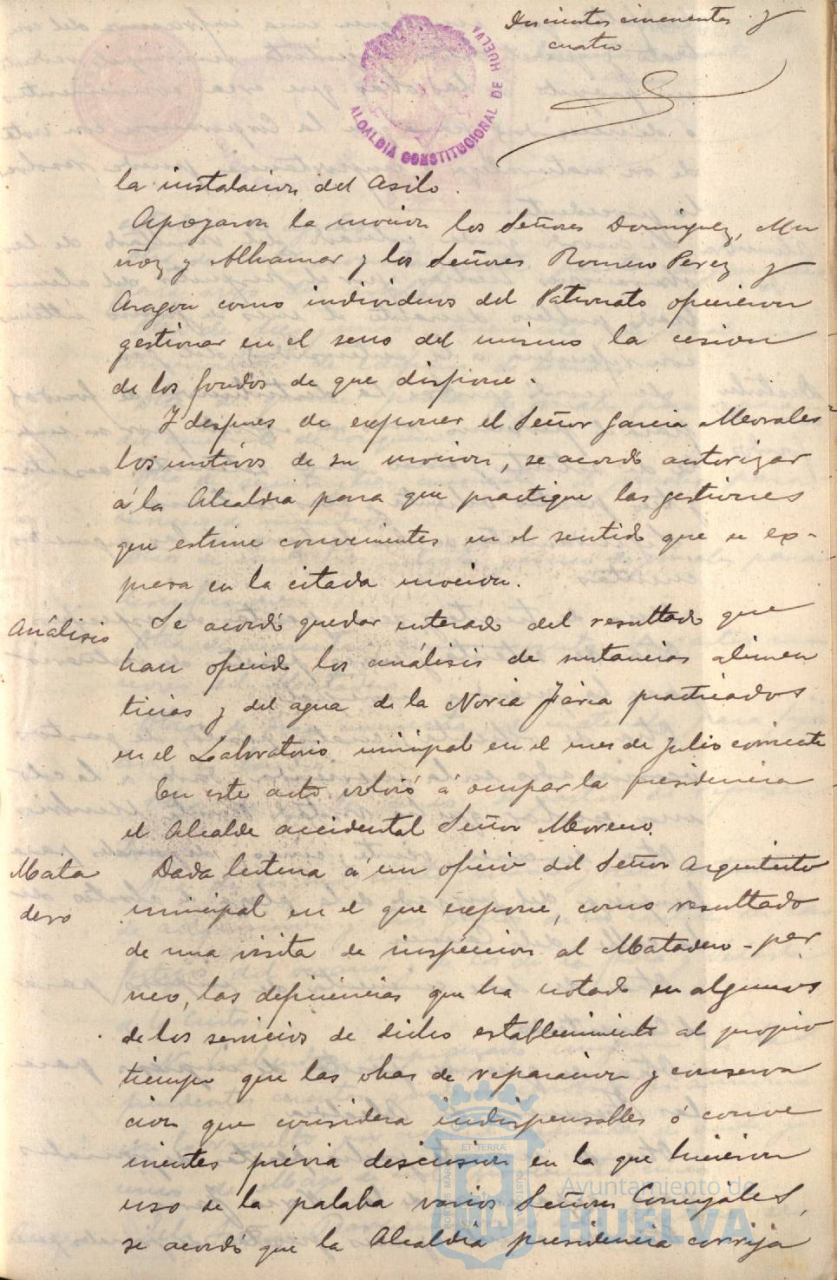 Doscientos cincuenta y
cuatro
ALCALDÍA CONSTITUCIONAL DE HUELVA
la instalacion del Asilo.
Apoyaron la mocion los Señores Dominguez, Mu
ñoz y Alhamar y los Señores Romero Perez y
Aragon como individuos del Patronato ofrecieron
gestionar en el seno del mismo la cesion
de los fondos de que dispone.
Y despues de exponer el Señor Garcia Morales
los motivos de su mocion, se acordó autorizar
á la Alcaldia para que practique las gestiones
que estime convenientes en el sentido que se ex-
presa en la citada mocion.
Análisis
Se acordó quedar enterado del resultado que
han ofrecido los análisis de sustancias alimen
ticias y del agua de la Noria practicados
en el Laboratorio municipal en el mes de Julio corriente
En este acto volvió á ocupar la presidencia
el Alcalde accidental Señor Moreno.
Mata
dero
Dada lectura á un oficio del Señor Arquitecto
municipal en el que expone, como resultado
de una visita de inspeccion al Matadero-per
neo, las deficiencias que ha notado en algunos
de los servicios de dicho establecimiento al propio
tiempo que las obras de reparacion y conserva
cion que considera indispensables ó conve
nientes prévia discusion en la que hicieron
uso de la palabra varios Señores Concejales,
se acordó que la Alcaldía presidencia corrija
Ayuntamiento de
HUELVA